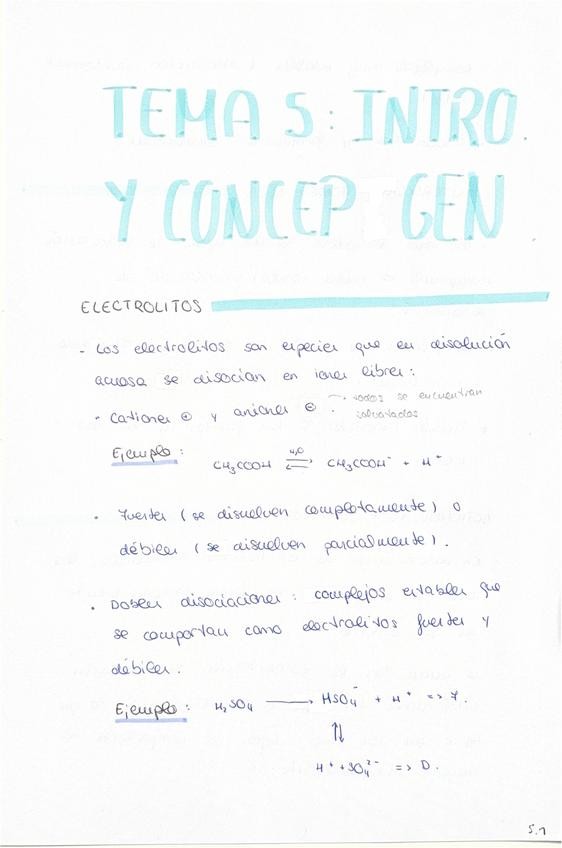 TEMA 5: INTRO.
Y CONCEP GEN.
ELECTROLITOS
- Los electrolitos son especies que en disolución
acuosa se disocian en iones libres:
- Cationes ⊕ y aniones ⊖ → todos se encuentran
solvatados
Ejemplo: CH₃COOH ⇌ H₂O CH₃COOH⁻ + H⁺
• Fuertes (se disuelven completamente) o
débiles (se disuelven parcialmente).
• Dobles disociaciones: complejos estables que
se comportan como electrolitos fuertes y
débiles.
Ejemplo: H₂SO₄ ⟶ HSO₄⁻ + H⁺ => F.
⇅
H⁺ + SO₄²⁻ => D.
5.1